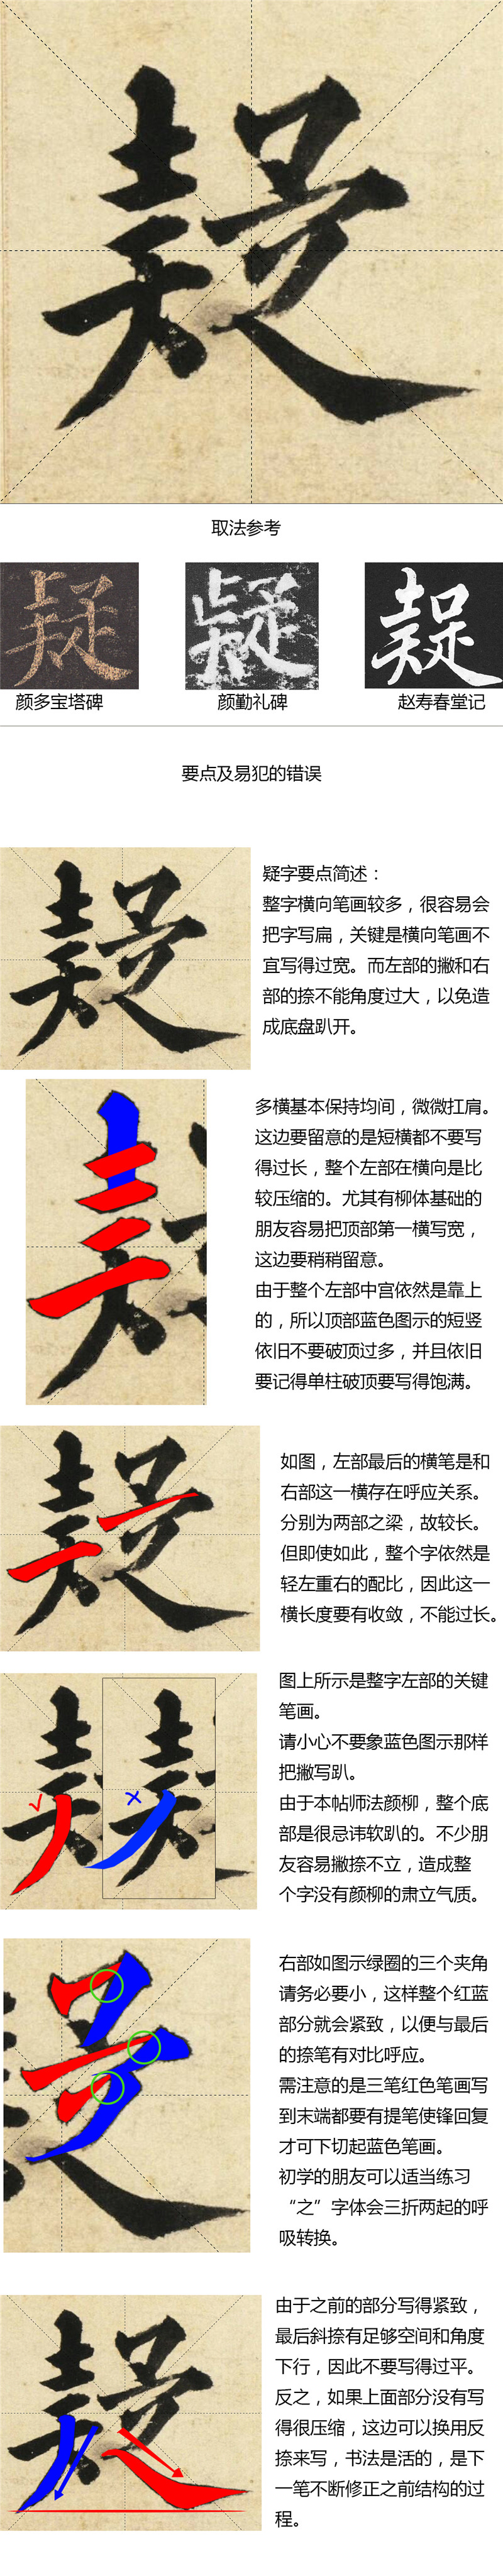 疑
取法参考
疑
疑
疑
颜多宝塔碑
颜勤礼碑
赵寿春堂记
要点及易犯的错误
疑字要点简述：
整字横向笔画较多，很容易会
把字写扁，关键是横向笔画不
宜写得过宽。而左部的撇和右
部的捺不能角度过大，以免造
成底盘趴开。
多横基本保持均间，微微扛肩。
这边要留意的是短横都不要写
得过长，整个左部在横向是比
较压缩的。尤其有柳体基础的
朋友容易把顶部第一横写宽，
这边要稍稍留意。
由于整个左部中宫依然是靠上
的，所以顶部蓝色图示的短竖
依旧不要破顶过多，并且依旧
要记得单柱破顶要写得饱满。
如图，左部最后的横笔是和
右部这一横存在呼应关系。
分别为两部之梁，故较长。
但即使如此，整个字依然是
轻左重右的配比，因此这一
横长度要有收敛，不能过长。
图上所示是整字左部的关键
笔画。
请小心不要象蓝色图示那样
把撇写趴。
由于本帖师法颜柳，整个底
部是很忌讳软趴的。不少朋
友容易撇捺不立，造成整
个字没有颜柳的肃立气质。
右部如图示绿圈的三个夹角
请务必要小，这样整个红蓝
部分就会紧致，以便与最后
的捺笔有对比呼应。
需注意的是三笔红色笔画写
到末端都要有提笔使锋回复
才可下切起蓝色笔画。
初学的朋友可以适当练习
“之”字体会三折两起的呼
吸转换。
由于之前的部分写得紧致，
最后斜捺有足够空间和角度
下行，因此不要写得过平。
反之，如果上面部分没有写
得很压缩，这边可以换用反
捺来写，书法是活的，是下
一笔不断修正之前结构的过
程。